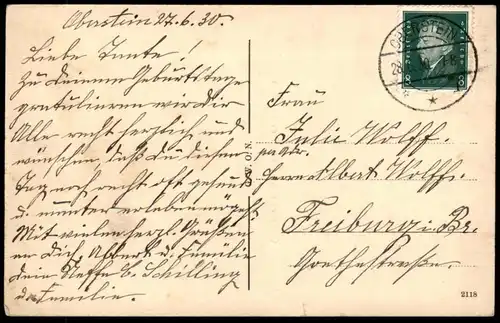 Oberstein 27.6.30.
Liebe Tante!
Zu Deinem Geburtstage
gratulieren wir Dir
Alle recht herzlich und
wünschen, daß Du diesen
Tag noch recht oft gesund
u. munter erleben mögest
Mit vielen herzl. Grüßen
an Dich, Albert u. Familie
Dein Neffe C. Schilling
u. Familie.
OBERSTEIN
Frau
Julie Wolff
per Adr.
Herrn Albert Wolff.
Freiburg i. Br.
Goethestraße.
2118